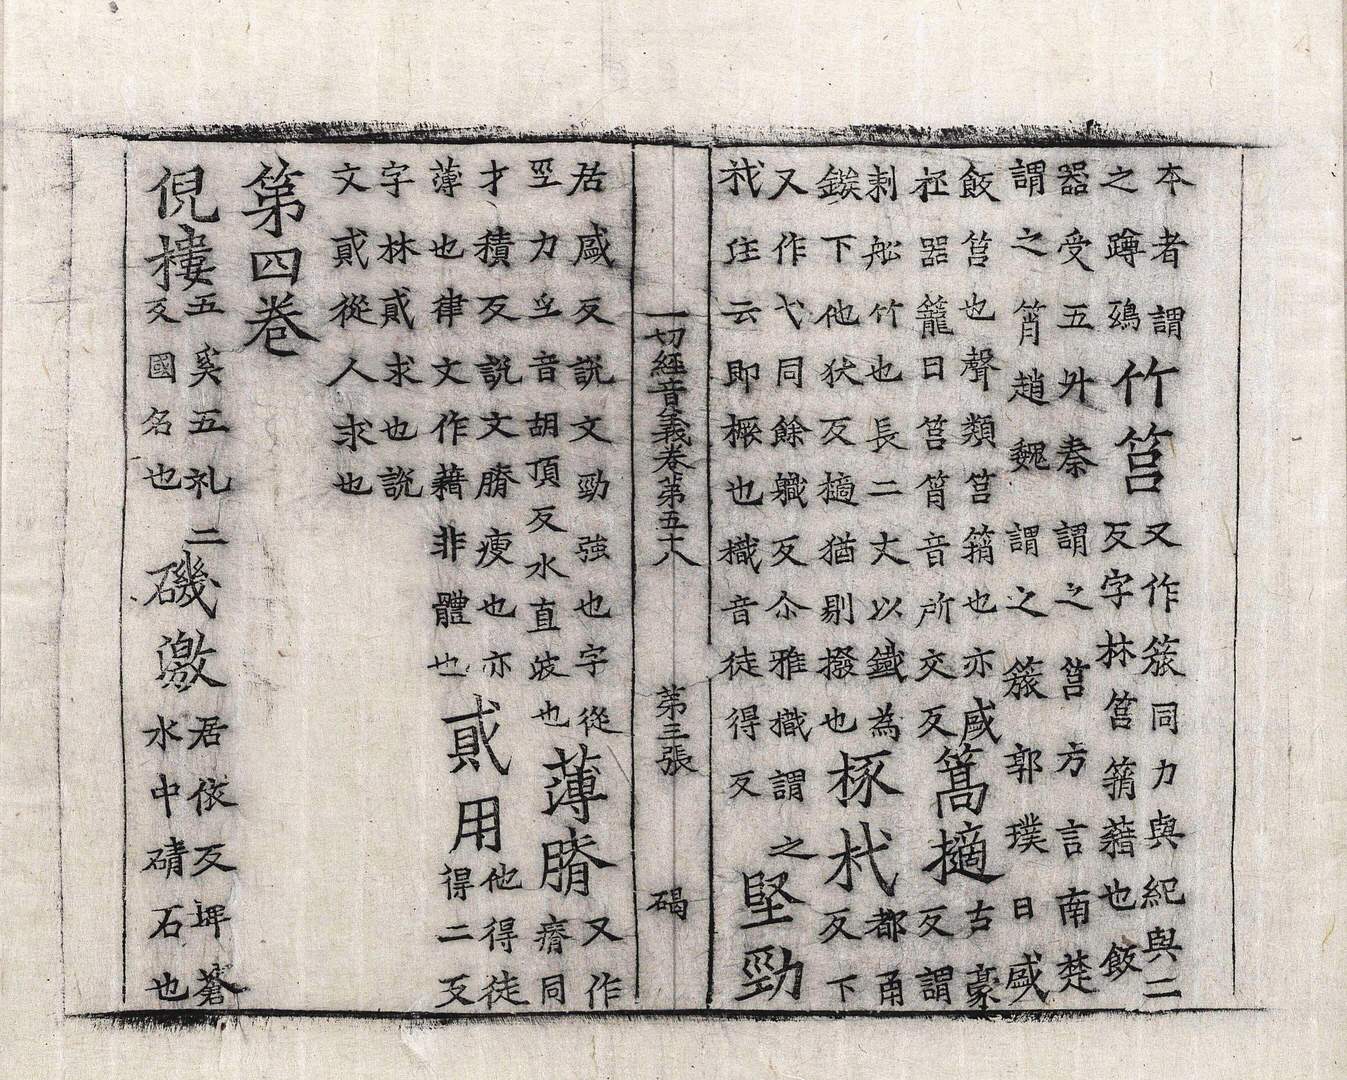 本者謂
之蹲鴟
竹筥
又作簇同力與紀與二
反字林筥筲藉也飯
器受五升秦謂之筥方言南楚
謂之筲趙魏謂之簇郭璞曰盛
飯筥也聲類筥箱也亦盛
柸器籠曰筥筲音所交反
篙擿
古豪
反謂
刺舩竹也長二丈以鐵為
鏃下他狄反擿猶剔撥也
椓杙
都角
反下
又作弋同餘職反尒雅樴謂之
栰注云即橛也樴音徒得反
堅勁
一切經音義卷第五十八 第三張 碣
居盛反說文勁強也字從
巠力音胡頂反水直波也
薄膌
又作
㾊同
才積反說文膌瘦也亦
薄也律文作藉非體也
貳用
他得徒
得二反
字林貳求也說
文貳從人求也
第四卷
倪樓
五奚五礼二
反國名也
磯激
居依反埤蒼
水中磧石也